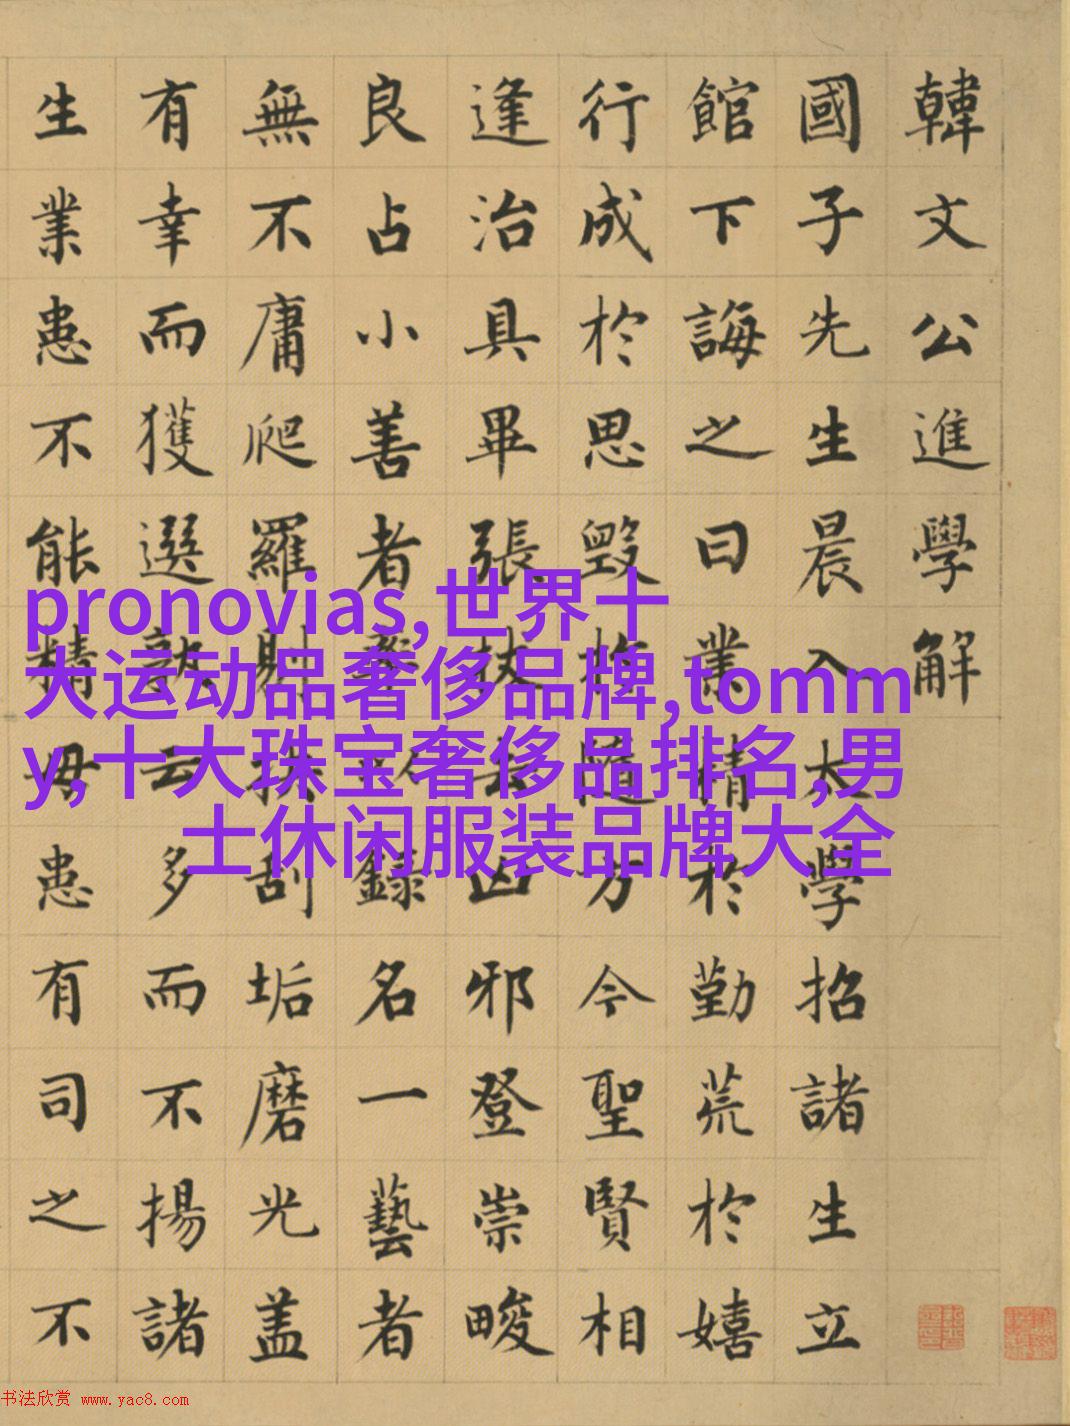 韓文公進學解
國子先生晨入太學招諸生立
館下誨之曰業精於勤荒於嬉
行成於思毀於隨方今聖賢相
逢治具畢張拔去凶邪登崇畯
良占小善者率以錄名一藝者
無不庸爬羅剔抉刮垢磨光盖
有幸而獲選孰云多而不揚諸
生業患不能精毋患有司之不
pronovias,世界十
大运动品奢侈品牌,tomm
y,十大珠宝奢侈品排名,男
士休闲服装品牌大全
书法欣赏 www.yac8.com